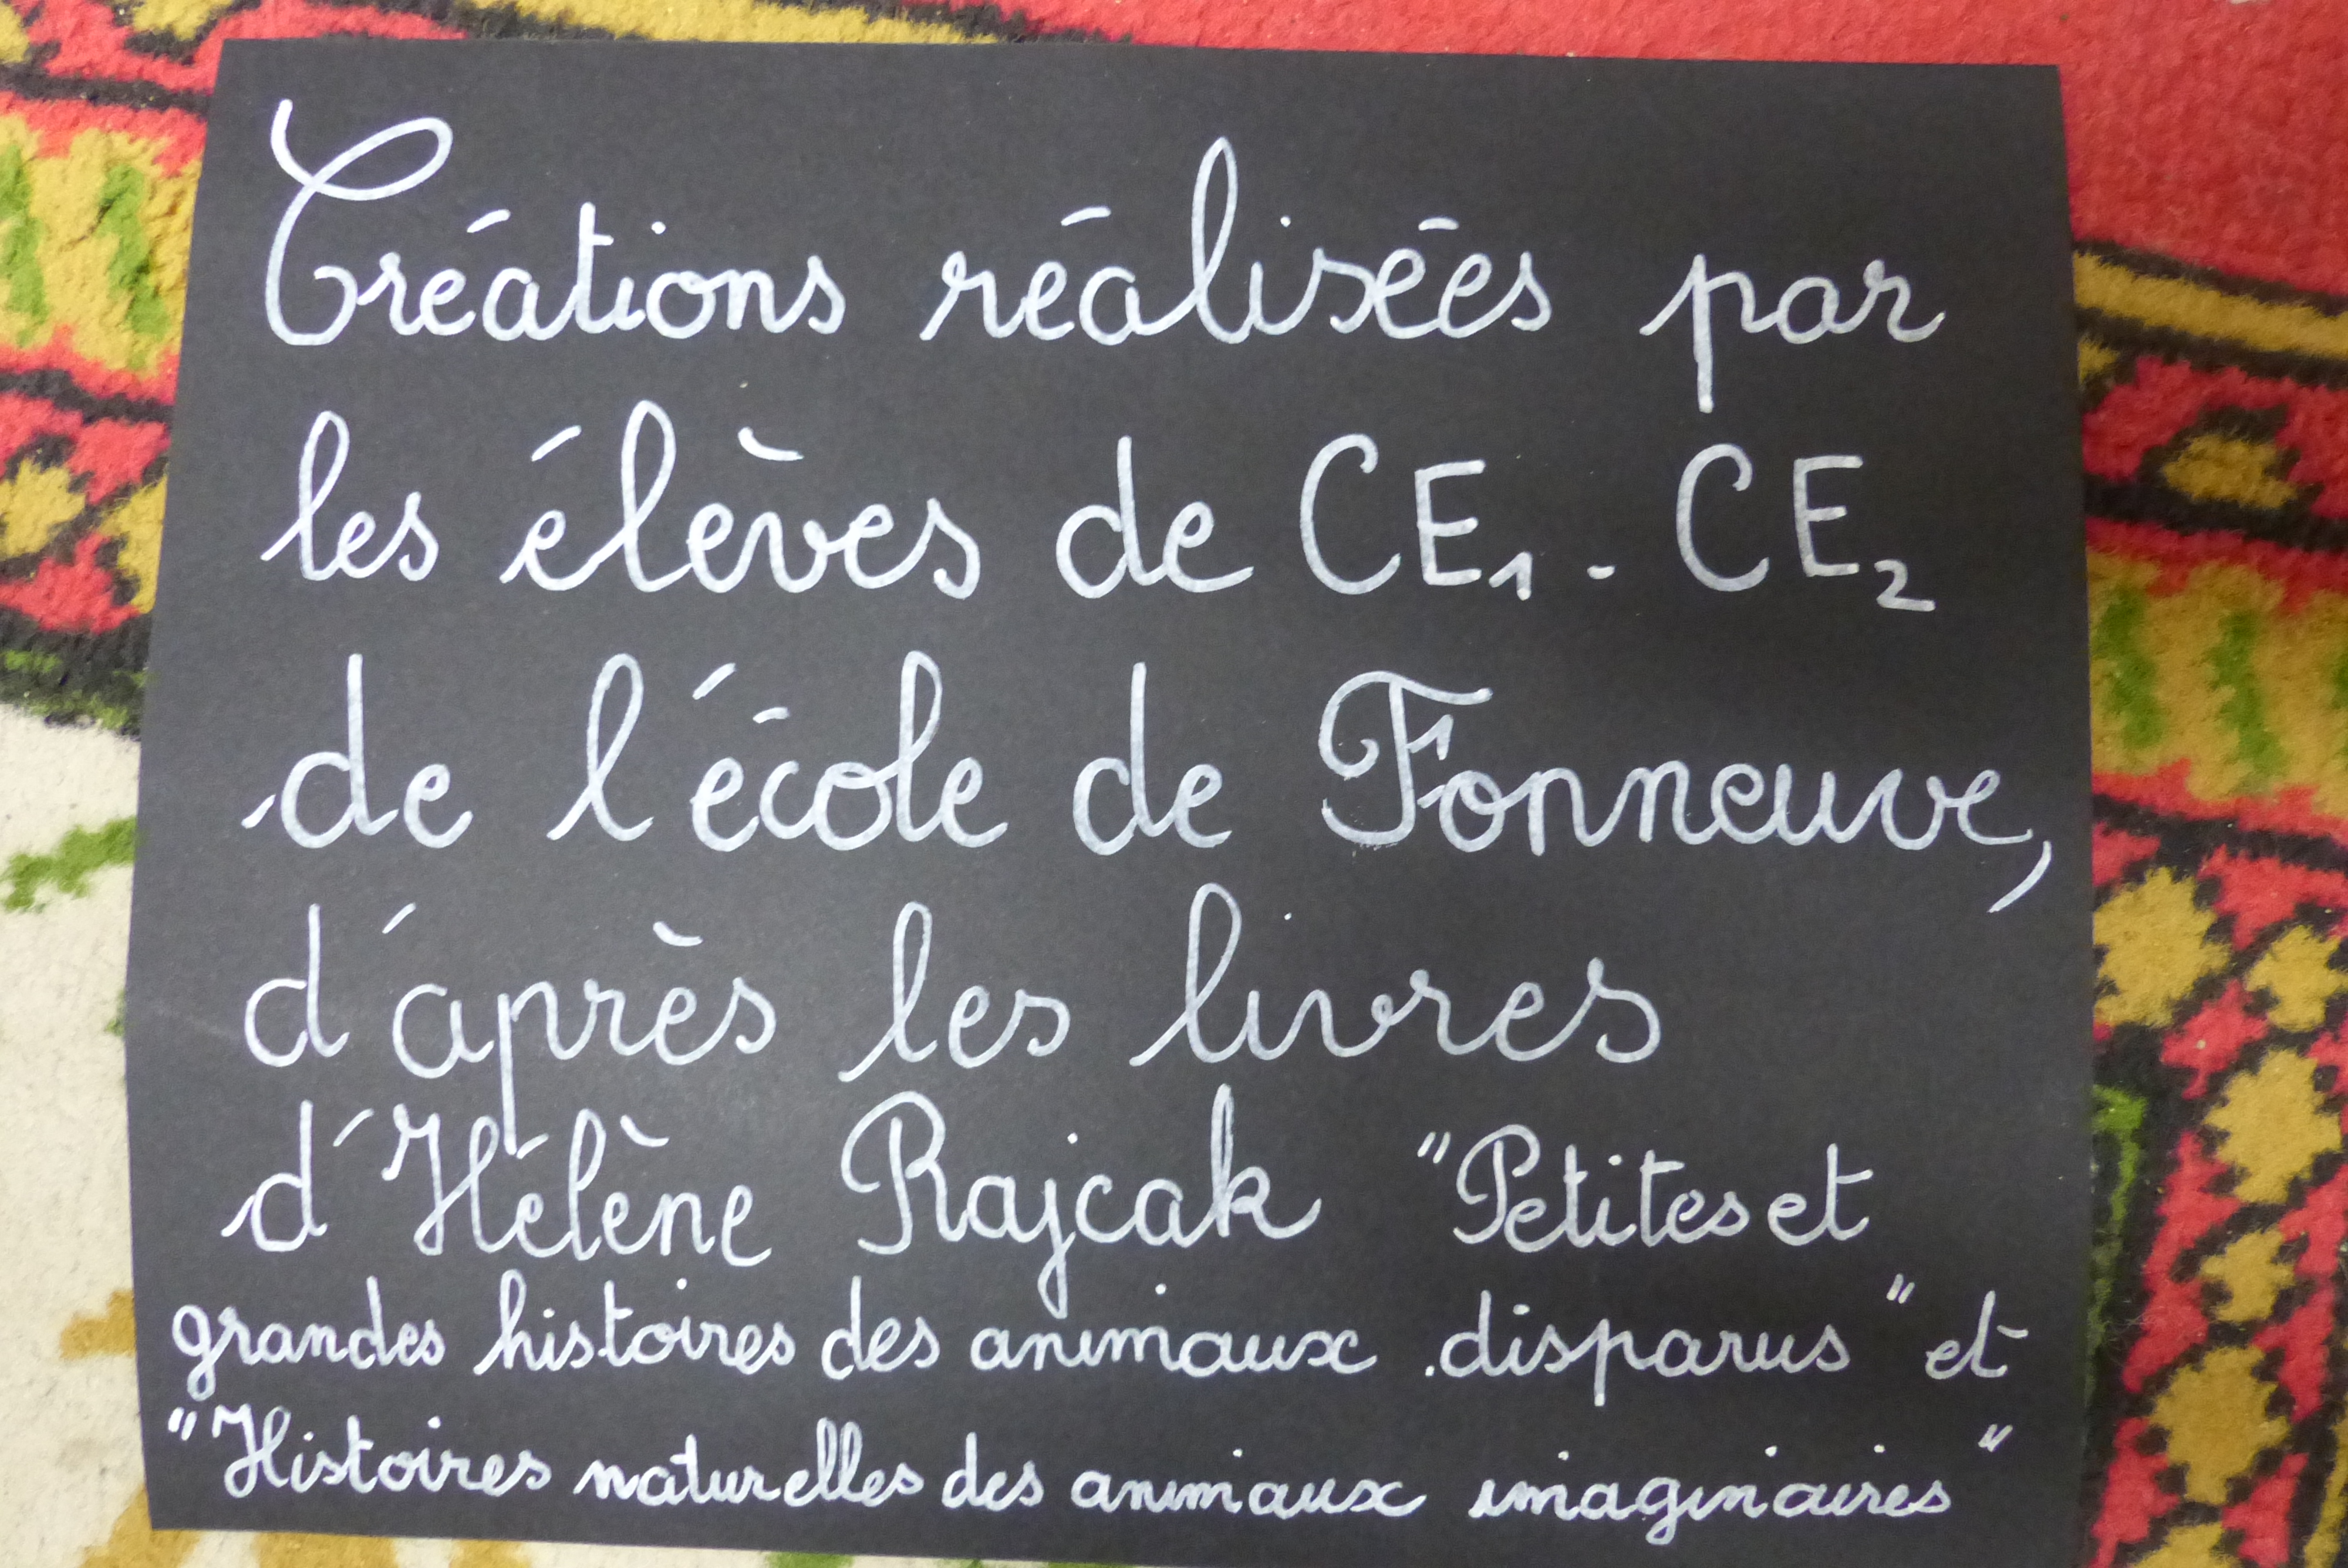 Créations réalisées par
les élèves de CE1 - CE2
de l'école de Fonneuve,
d'après les livres
d'Hélène Rajcak "Petites et
grandes histoires des animaux disparus" et
"Histoires naturelles des animaux imaginaires"